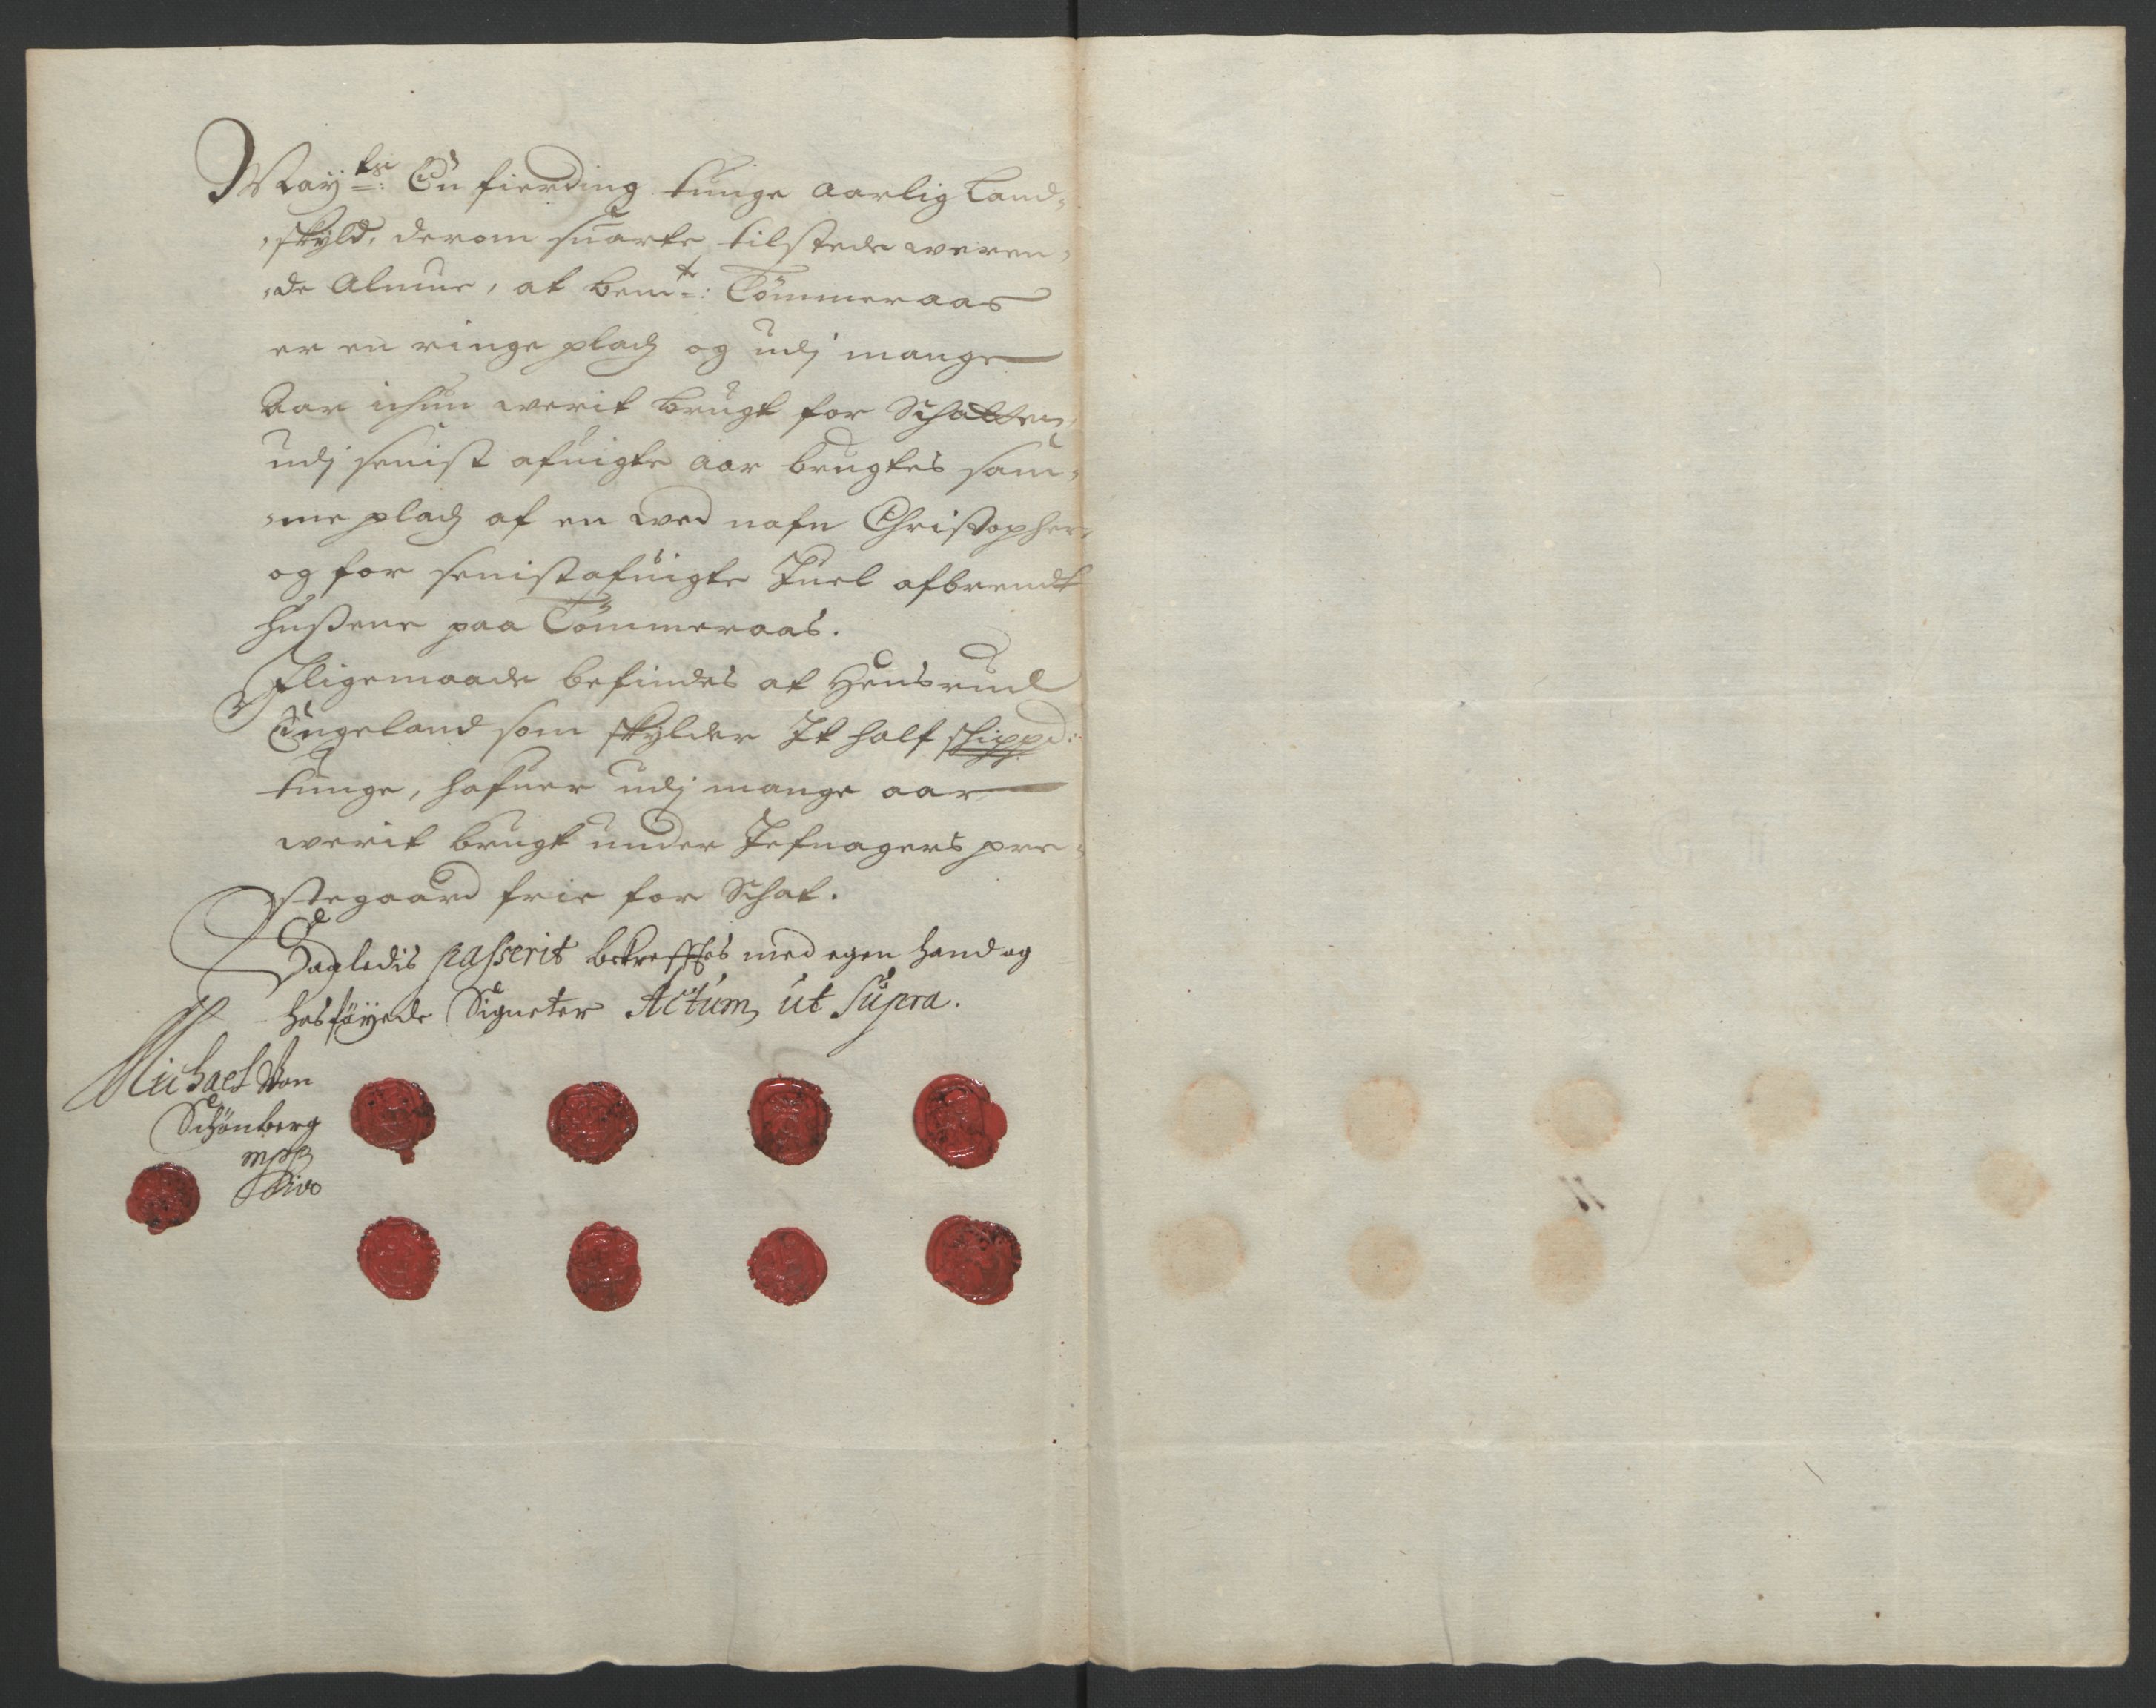 May:ts: En fierding tunge aarlig Land-
skyld, derom suarte tilstede weren-
de Almue, at bem:te: Tömmeraas
er en ringe pladz og udj mange
Aar ichun werit brugt for Schatten,
udj senist afuigte aar brugtes sam-
me pladz af en wed nafn Christopher,
og for senist afuigte Juel afbrendt
husene paa Tömmeraas.
Jligemaade befindes at Hensrud
Engeland som skylder It half schippd:
tunge, hafuer udj mange aar
werit brugt under Jefnagers pre-
stegaard frie for Schat.
Saaledis passerit bekrefftes med egen haand og
hosföyede Signeter Actum ut Supra.
Michael Von
Schönberg
mppa